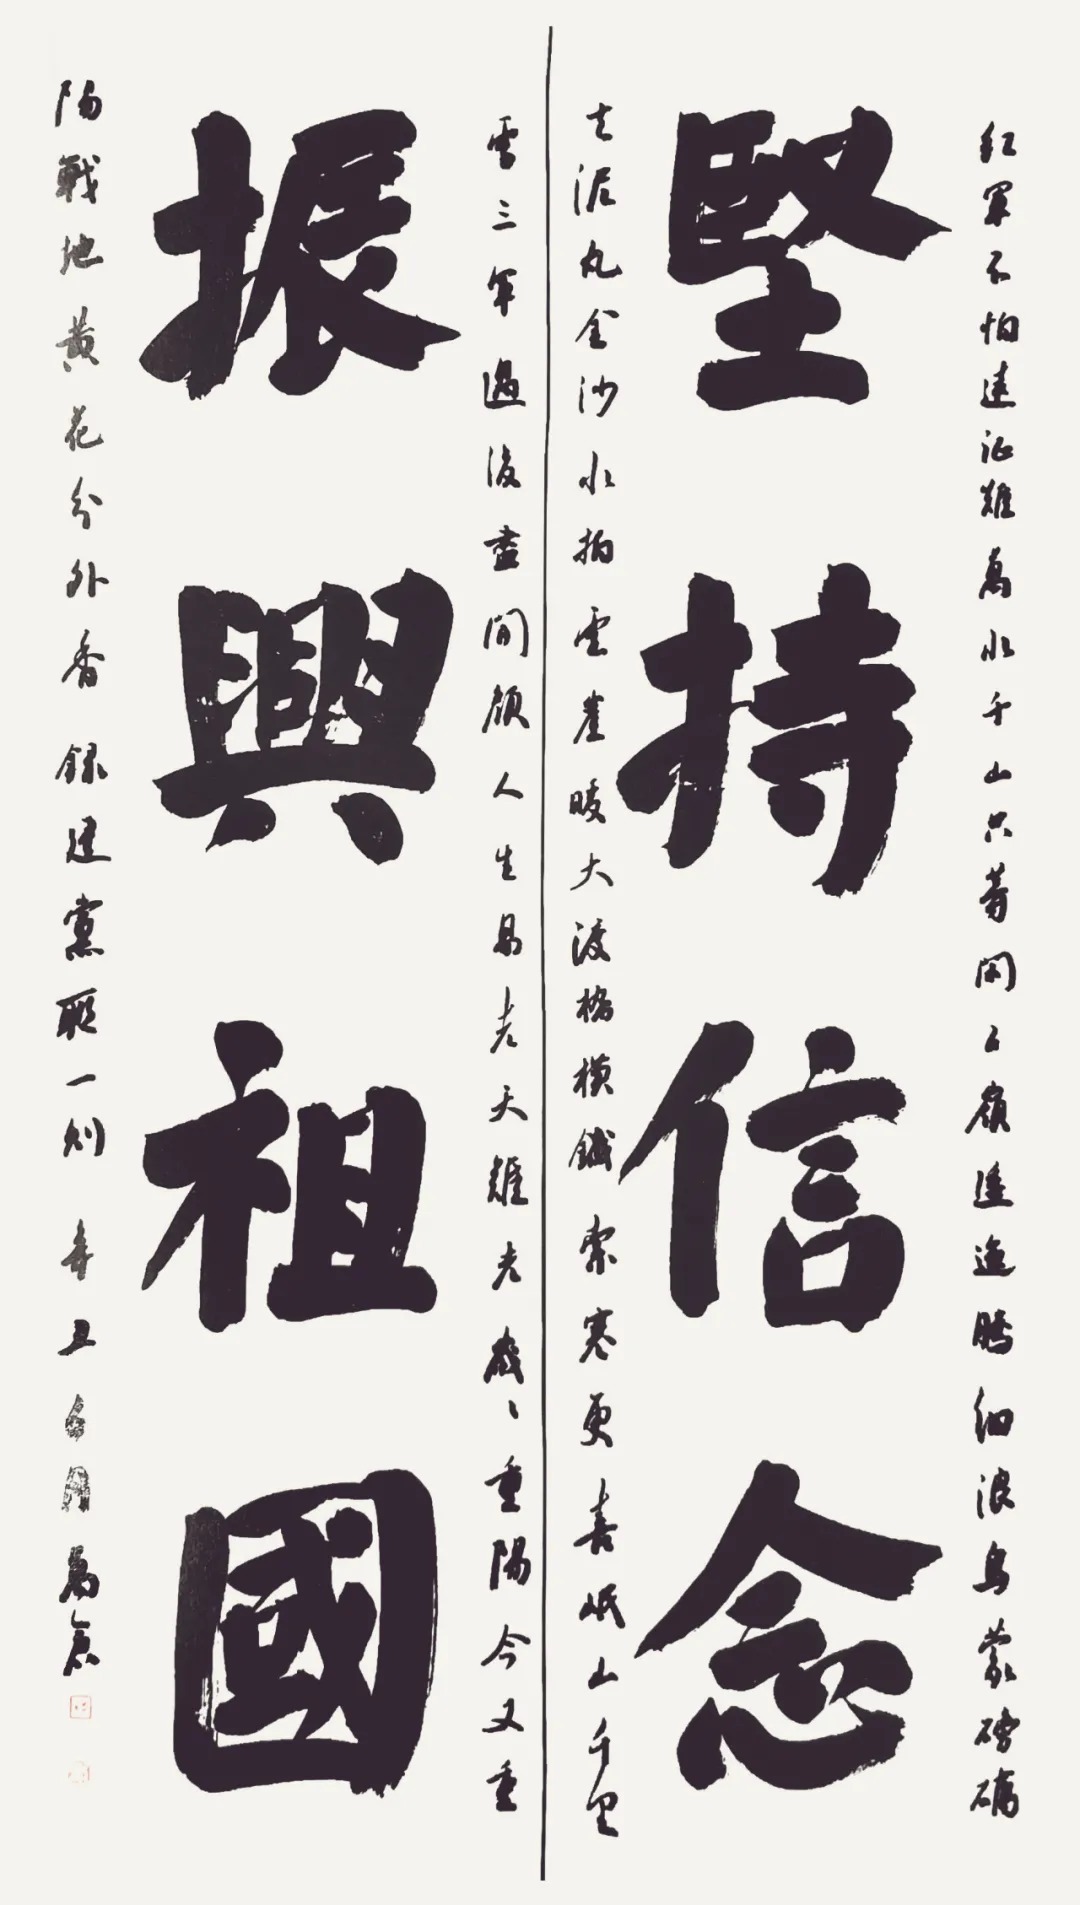 紅軍不怕遠征難萬水千山只等閑五嶺逶迤騰細浪烏蒙磅礴
堅持信念
走泥丸金沙水拍雲崖暖大渡橋橫鐵索寒更喜岷山千里
雪三軍過後盡開顏人生易老天難老歲々重陽今又重
振興祖國
陽戰地黃花分外香錄建黨聯一則辛丑六月